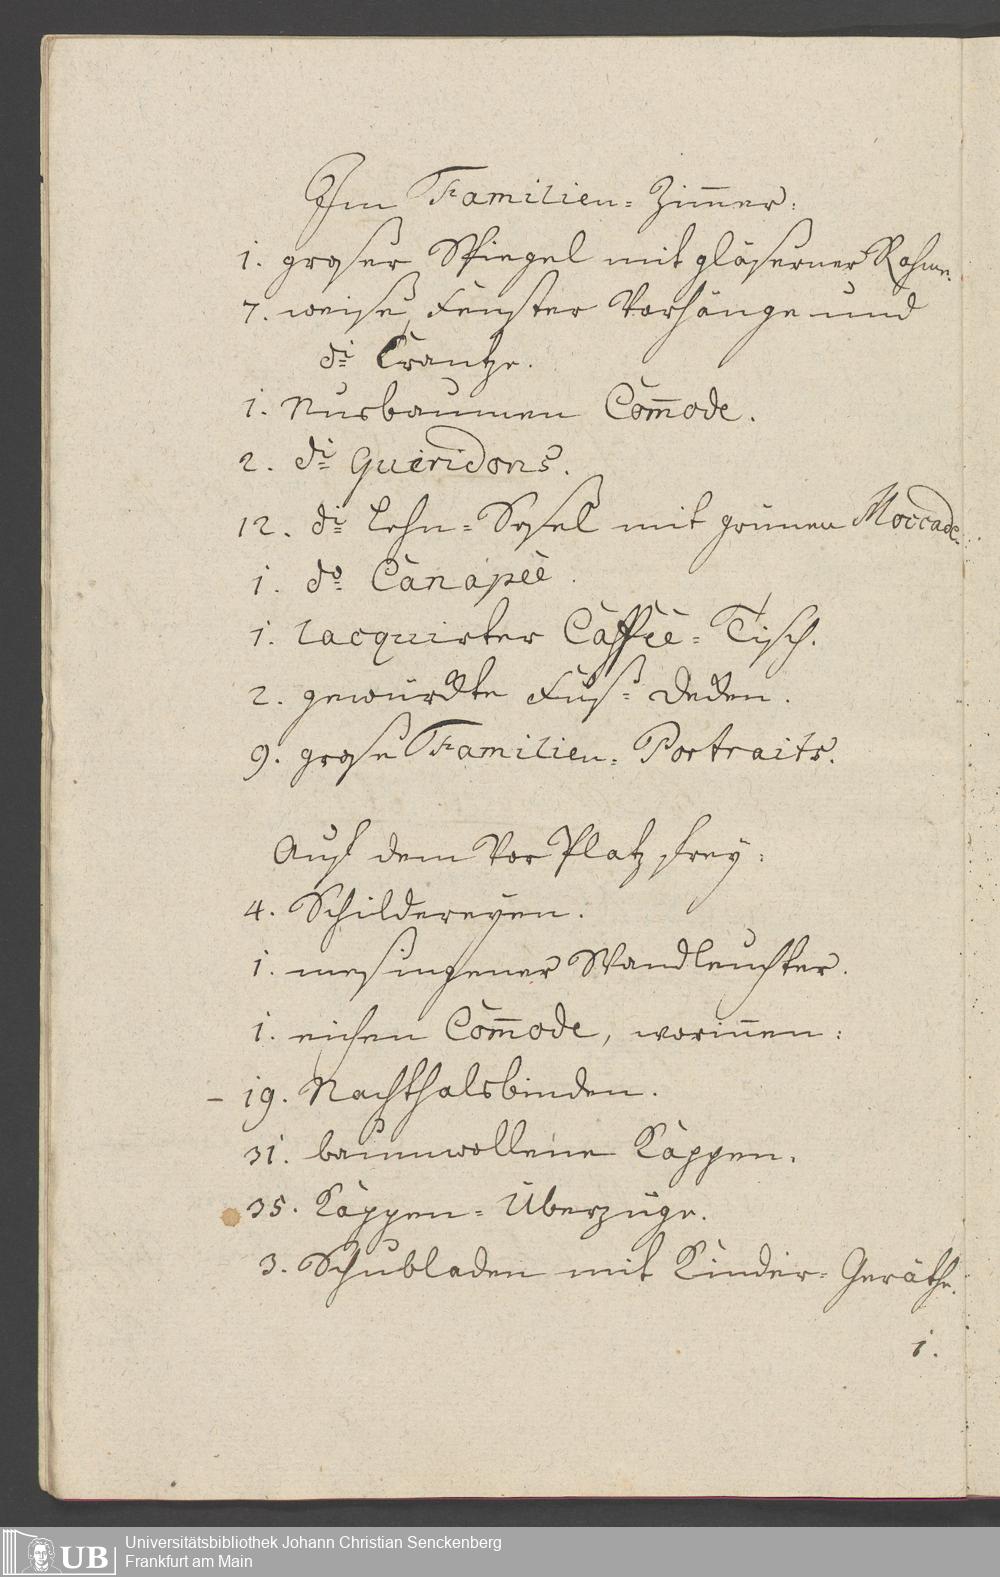 Im Familien-Zim̄er:
1. groser Spiegel mit gläserner Rahme.
7. weise Fenster Vorhänge und
di Crantze.
1. Nusbaumen Com̄ode.
2. di Gueridons.
12. di Lehn-Sesel mit grünen Moccade.
1. do Canapée.
1. lacquirter Caffée-Tisch.
2. gewürckte Fus-Decken.
9. grose Familien-Portraits.
Auf dem Vor Platz frey:
4. Schildereyen.
1. mesingener Wandleuchter.
1. eichen Com̄ode, worin̄en:
- 19. Nachthalsbinden.
31. baumwollene Kappen.
35. Kappen-Überzüge.
3. Schubladen mit Kinder-Geräthe.
1.
UB
Universitätsbibliothek Johann Christian Senckenberg
Frankfurt am Main